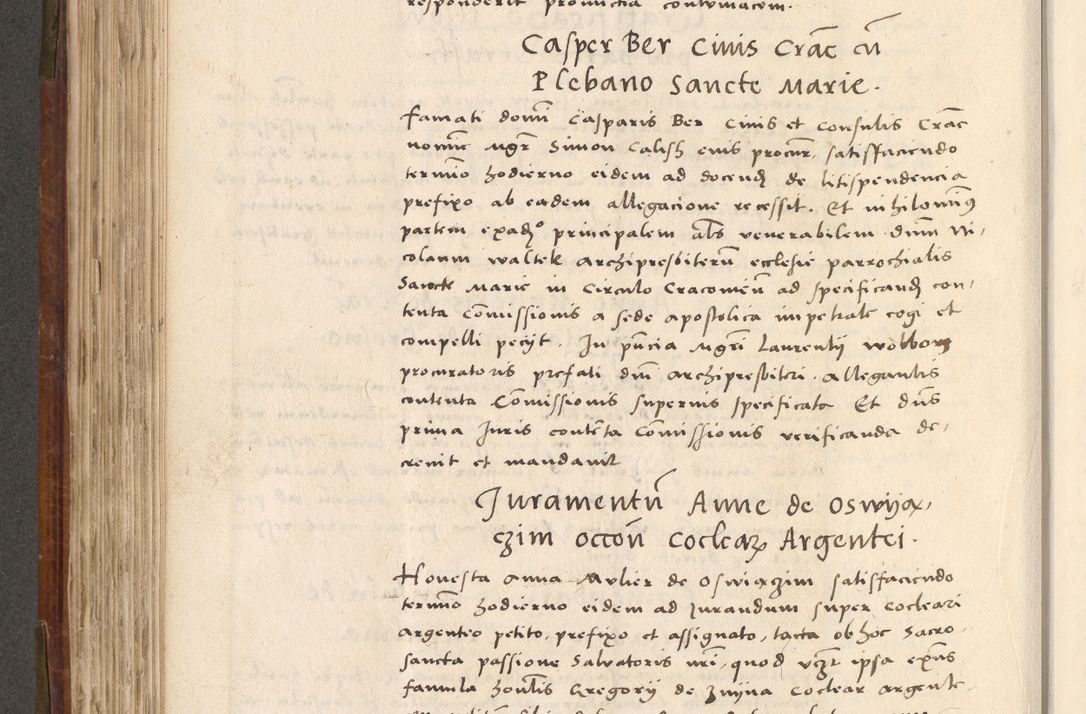 responderit pronuncia contumacem.
Casper Ber Civis Crac̄ cū
Plebano Sancte Marie.
famati domī Casparis Ber Civis et Consulis Crac̄
nomīe Mgr̄ Simon Calish eius procur̄, satisfaciendo
termīo hodierno eidem ad docend de litispendencia
prefixo ab eadem allegacione recessit. Et nihilomīꝰ
partem exad principalem als̄ venerabilem dūm Ni,
colaum waltek Archipresbiterū ecclesie parrochialis
Sancte Marie in Circulo Cracovieñ ad specificand con,
tenta Com̄issionis a sede apostolica impetrate cogi et
compelli peciit. In pn̄cia Mgr̄i Laurentii wobbory
procuratoris prefati dnī Archipresbiteri. Allegantis
contenta Com̄issionis superius specificata Et dn̄s
prima Iuris contēta Com̄issionis verificanda de,
crevit et mandavit
Juramentū Anne de Oswiją,
czim occoñ Coclearꝝ Argentei.
Honesta Anna Mulier de Oswiączim satisfaciendo
termīo hodierno eidem ad Jurandum super Cocleari
argenteo petito, prefixo et assignato, tacta ob hoc Sacro,
sancta passione Salvatoris nr̄i, quod vz̄ ipsa exn̄s
famula hon̄lis Gregorij de Zwijna Coclear argente,